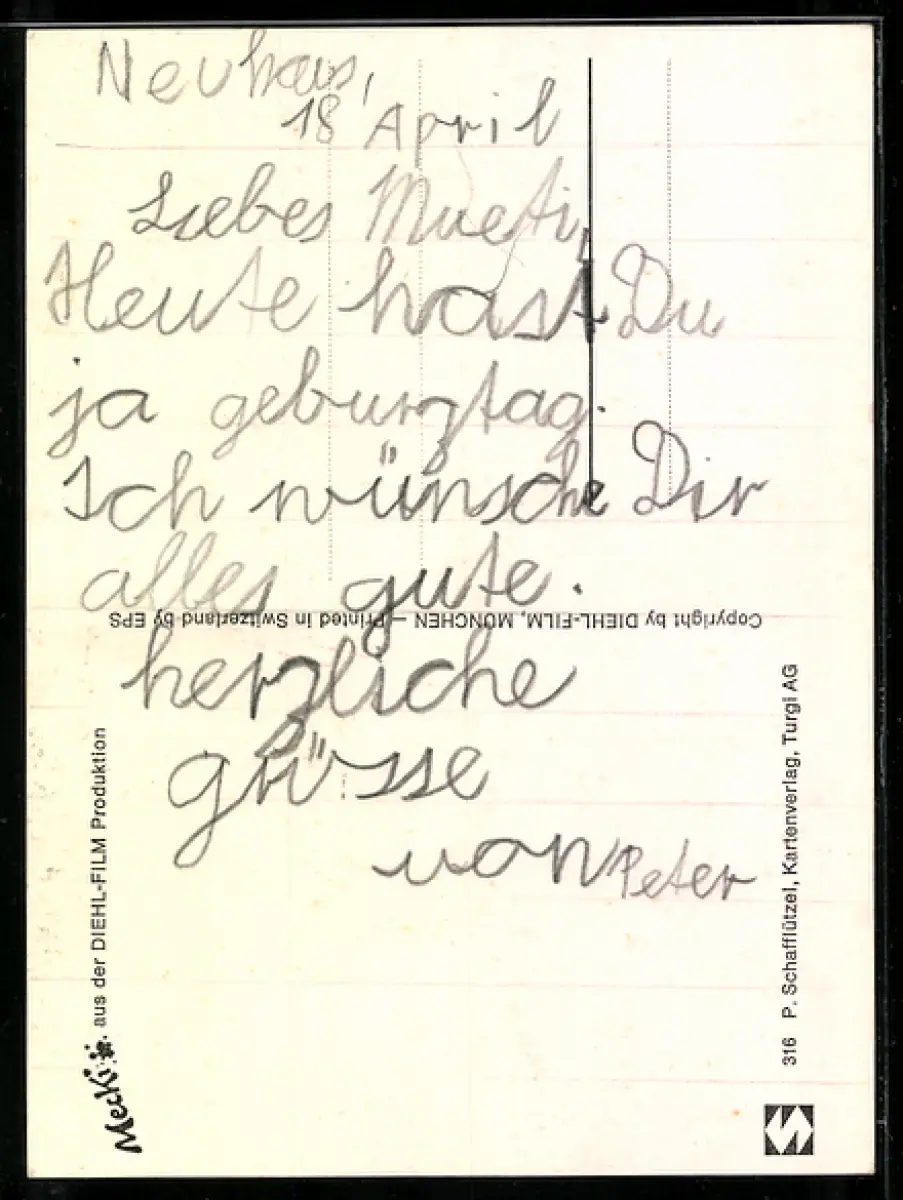 Neuhaus,
18 April
Liebes Mueti,
Heute hast Du
ja geburztag.
Ich wünsche Dir
alles gute.
herzliche
grüsse
von Peter
Copyright by DIEHL-FILM, MÜNCHEN — Printed in Switzerland by EPS
Mecki aus der DIEHL-FILM Produktion
316 P. Schafflützel, Kartenverlag, Turgi AG